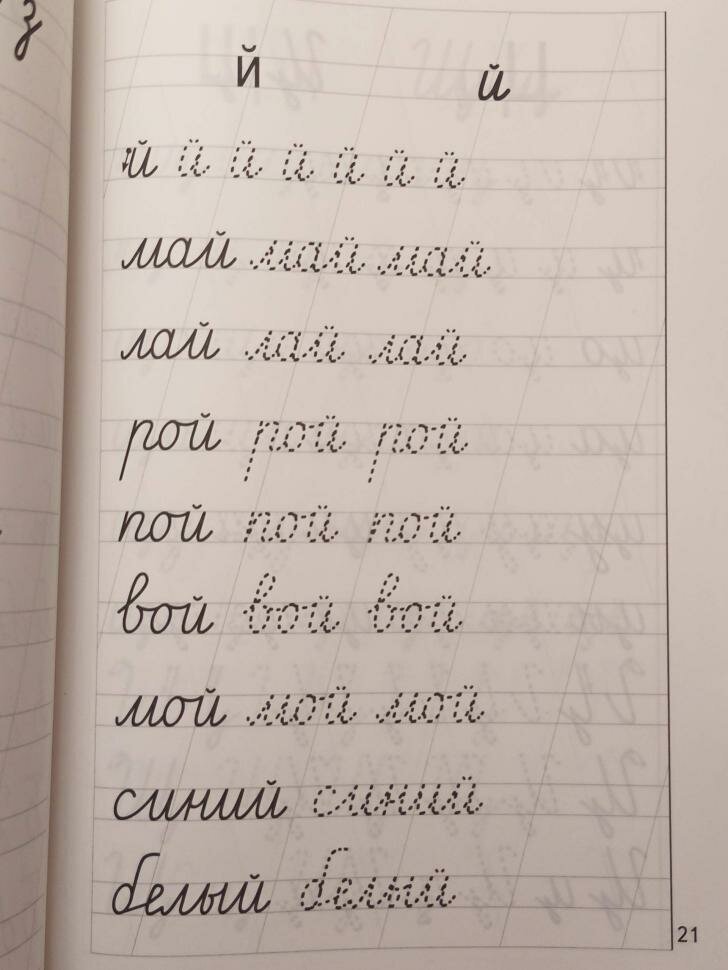 з
й й
й й й й й й й
май май май
лай лай лай
рой рой рой
пой пой пой
вой вой вой
мой мой мой
синий синий
белый белый
21